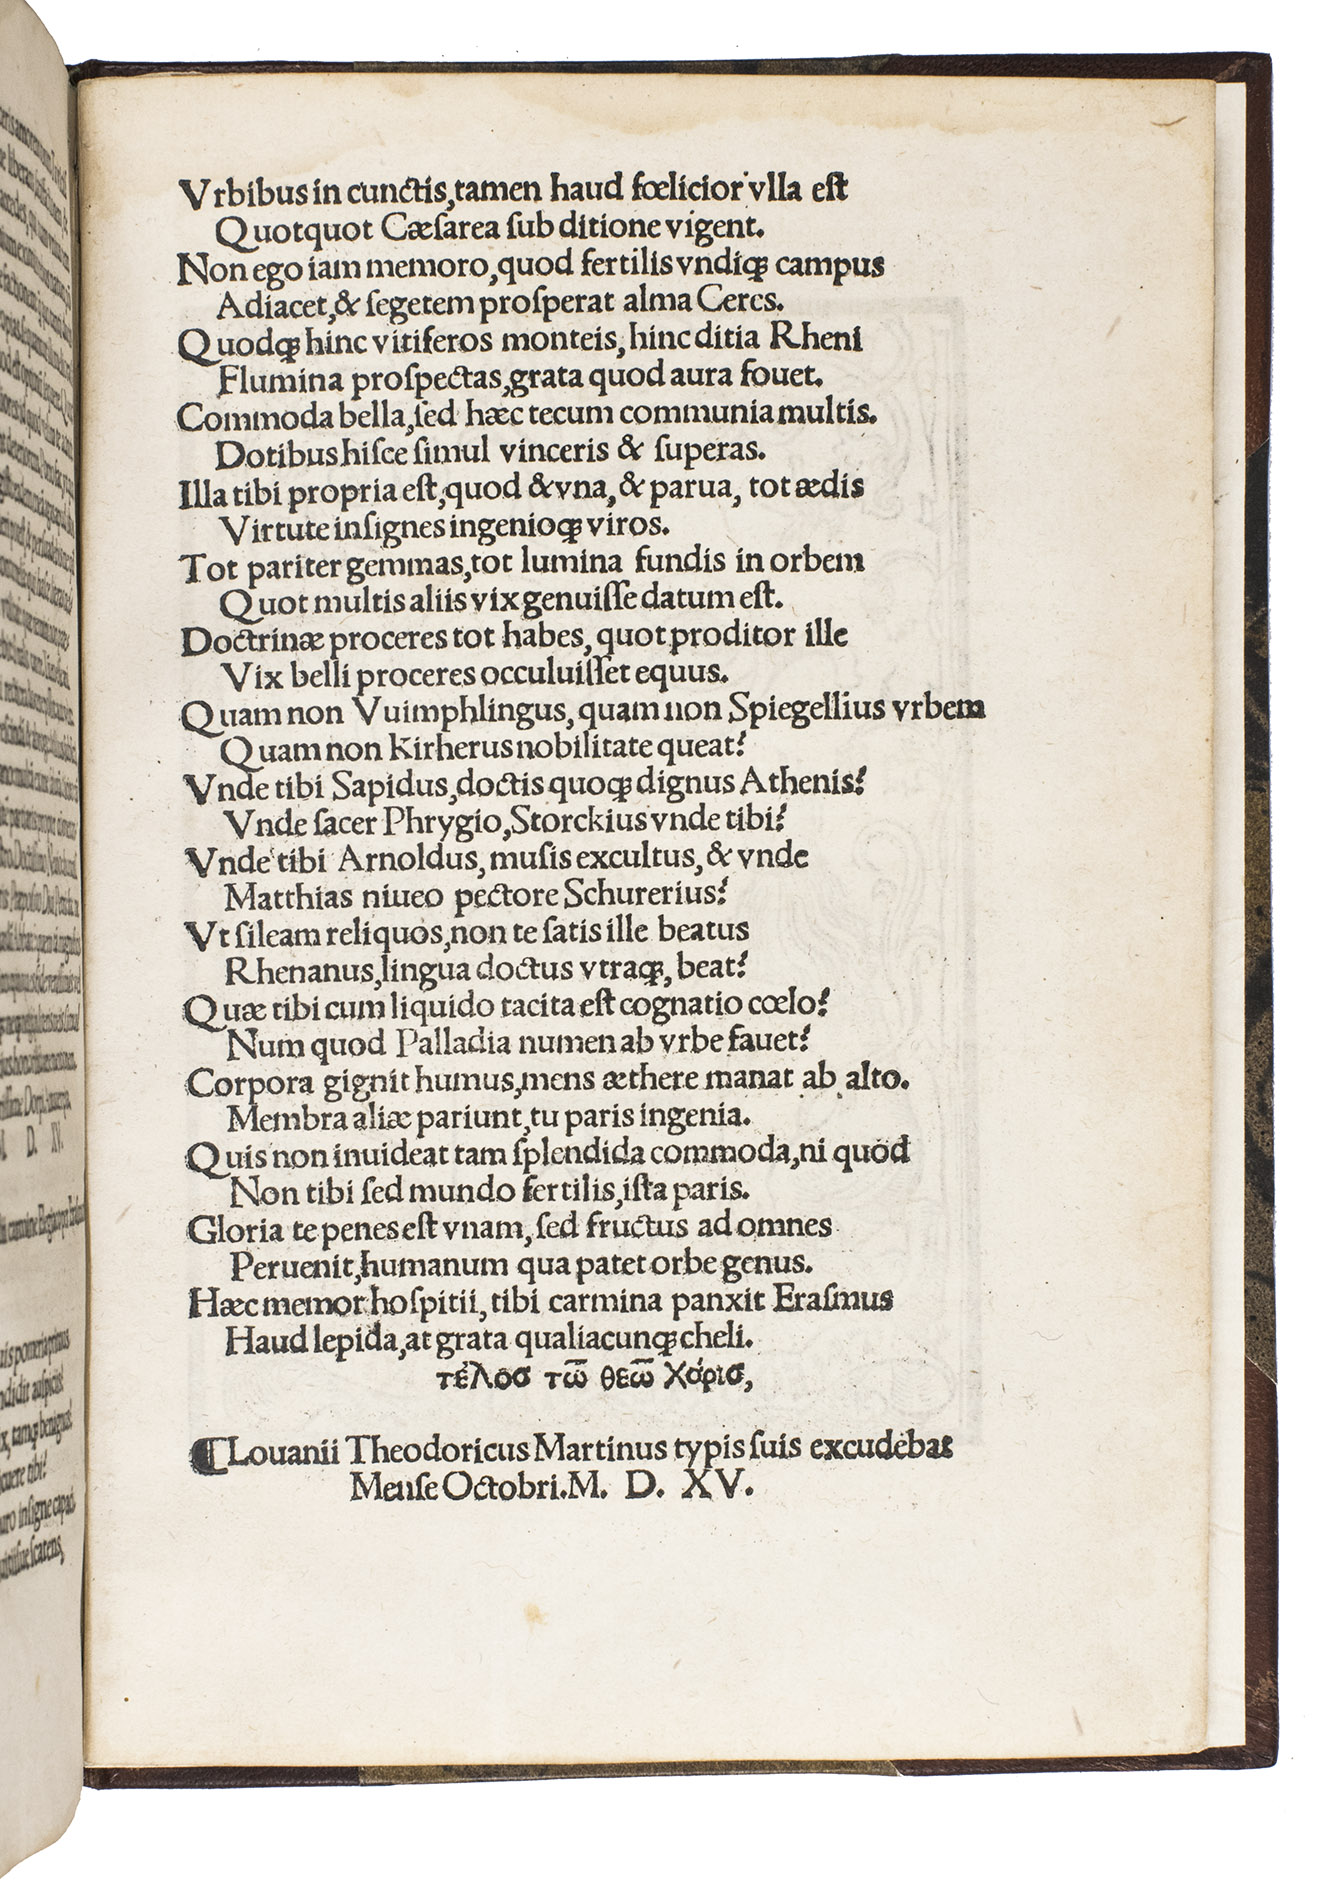 Vrbibus in cunctis, tamen haud fœlicior vlla eſt
Quotquot Cæſarea ſub ditione vigent.
Non ego iam memoro, quod fertilis vndiqꝫ campus
Adiacet, & ſegetem proſperat alma Ceres.
Quodqꝫ hinc vitiferos monteis, hinc ditia Rheni
Flumina proſpectas, grata quod aura fouet.
Commoda bella, ſed hæc tecum communia multis.
Dotibus hiſce simul vinceris & ſuperas.
Illa tibi propria eſt, quod & vna, & parua, tot ædis
Virtute inſignes ingenioqꝫ viros.
Tot pariter gemmas, tot lumina fundis in orbem
Quot multis aliis vix genuiſſe datum eſt.
Doctrinæ proceres tot habes, quot proditor ille
Vix belli proceres occuluiſſet equus.
Quam non Vuimphlingus, quam non Spiegellius vrbem
Quam non Kirherus nobilitate queat?
Vnde tibi Sapidus, doctis quoqꝫ dignus Athenis?
Vnde ſacer Phrygio, Storckius vnde tibi?
Vnde tibi Arnoldus, muſis excultus, & vnde
Matthias niueo pectore Schurerius?
Vt ſileam reliquos, non te ſatis ille beatus
Rhenanus, lingua doctus vtraqꝫ, beat?
Quæ tibi cum liquido tacita eſt cognatio cœlo?
Num quod Palladia numen ab vrbe fauet?
Corpora gignit humus, mens æthere manat ab alto.
Membra aliæ pariunt, tu paris ingenia.
Quis non inuideat tam ſplendida commoda, ni quod
Non tibi ſed mundo fertilis, iſta paris.
Gloria te penes eſt vnam, ſed fructus ad omnes
Peruenit, humanum qua patet orbe genus.
Hæc memor hoſpitii, tibi carmina panxit Eraſmus
Haud lepida, at grata qualiacunqꝫ cheli.
τέλοσ τῶ θεῶ χάρισ,
¶ Louanii Theodoricus Martinus typis ſuis excudebat
Menſe Octobri. M. D. XV.